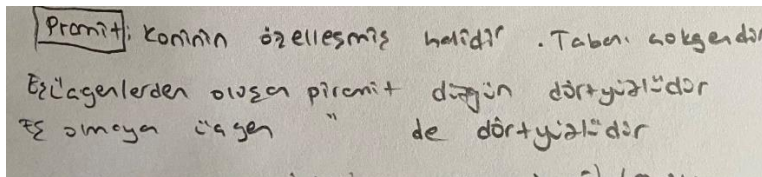 Promit: Koninin özelleşmiş halidir. Tabanı çokgendir
Eş üçgenlerden oluşan piramit düzgün dörtyüzlüdür
Eş olmayan üçgen " de dörtyüzlüdür